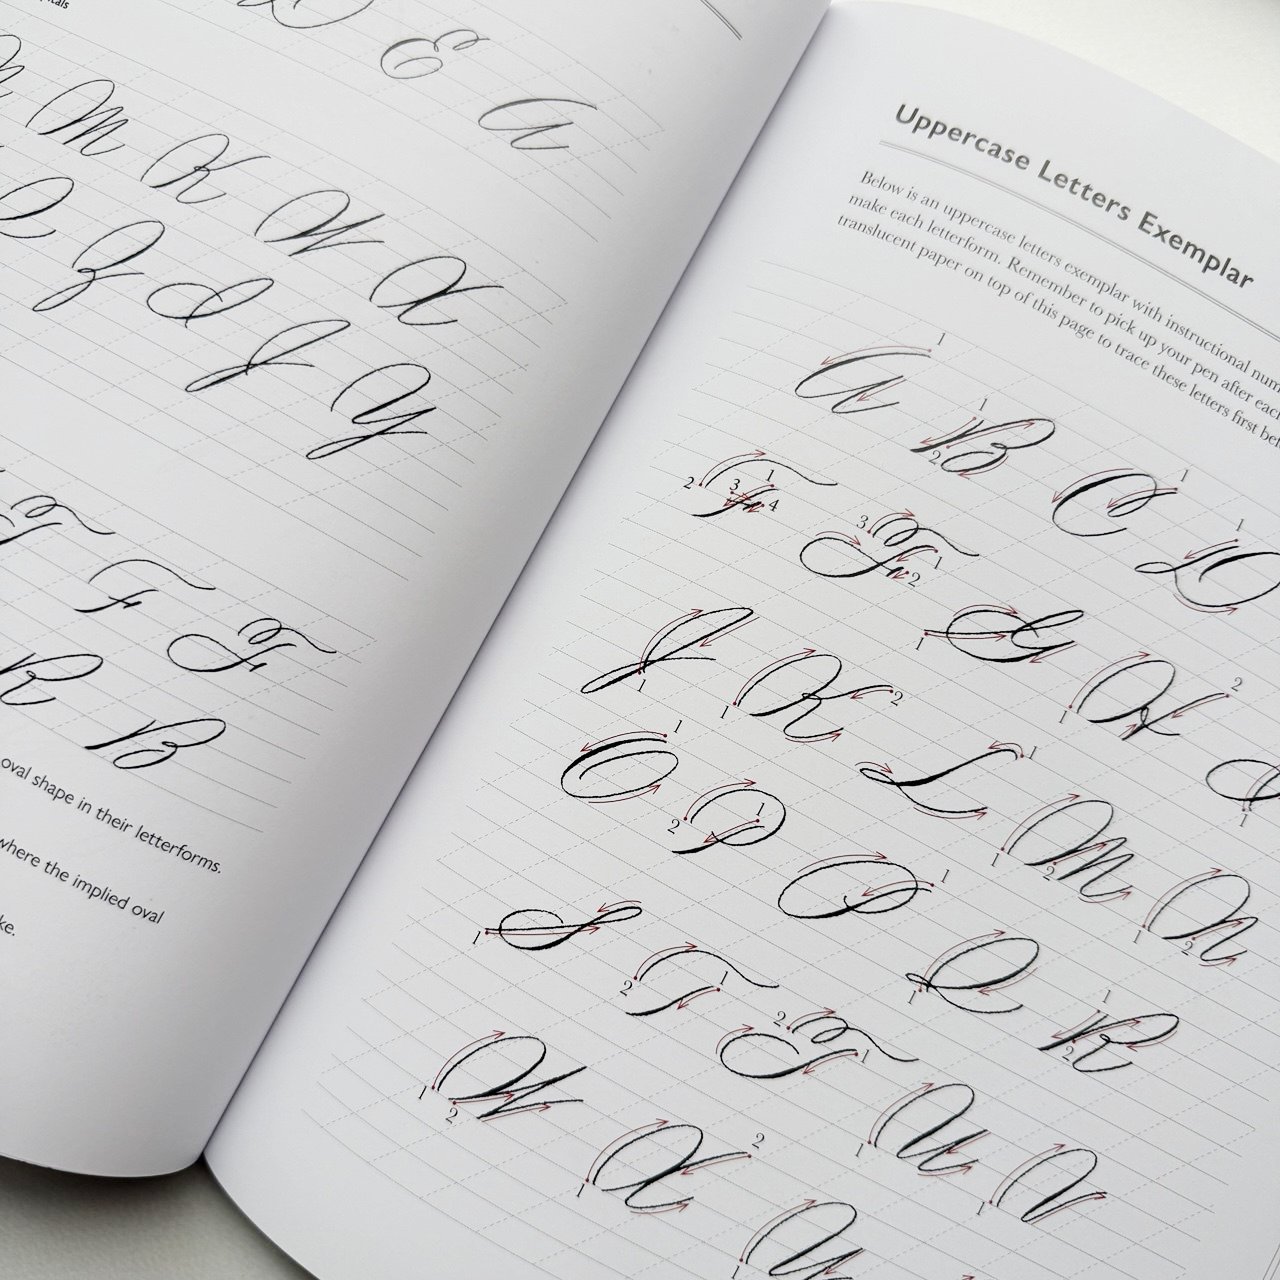 D E A
M K W X
Q Z I J Y
T F F
R B
oval shape in their letterforms.
where the implied oval
Uppercase Letters Exemplar
Below is an uppercase letters exemplar with instructional
make each letterform. Remember to pick up your pen after each
translucent paper on top of this page to trace these letters first
1 A 1 2 B 1 C 1 D
2 3 1 4 F 3 1 2 F 1 G 1 2 H 1 I
1 J 1 2 K 1 L 1 2 M 1 2 N
1 O 2 1 P 1 P 1 Q 1 2 R
1 S 2 1 T 2 1 T 1 U 1 V
1 2 W 1 2 X 1 Y